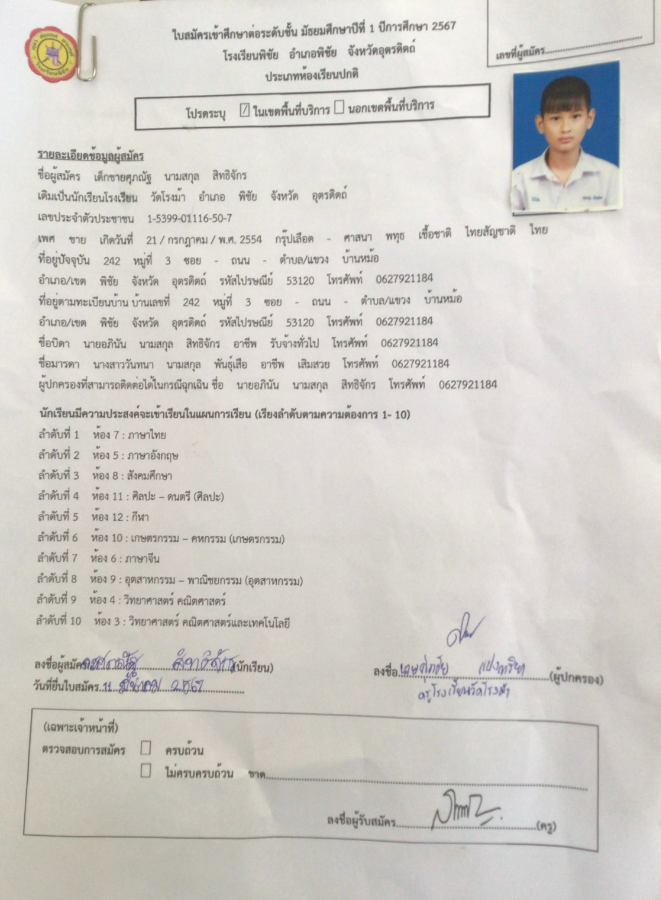 ใบสมัครเข้าศึกษาต่อระดับชั้น มัธยมศึกษาปีที่ 1 ปีการศึกษา 2567
โรงเรียนพิชัย อำเภอพิชัย จังหวัดอุตรดิตถ์
ประเภทห้องเรียนปกติ
เลขที่ผู้สมัคร
โปรดระบุ ☑ ในเขตพื้นที่บริการ ☐ นอกเขตพื้นที่บริการ
รายละเอียดข้อมูลผู้สมัคร
ชื่อผู้สมัคร เด็กชายศุภณัฐ นามสกุล สิทธิจักร
เดิมเป็นนักเรียนโรงเรียน วัดโรงม้า อำเภอ พิชัย จังหวัด อุตรดิตถ์
เลขประจำตัวประชาชน 1-5399-01116-50-7
เพศ ชาย เกิดวันที่ 21 / กรกฎาคม / พ.ศ. 2554 กรุ๊ปเลือด - ศาสนา พุทธ เชื้อชาติ ไทยสัญชาติ ไทย
ที่อยู่ปัจจุบัน 242 หมู่ที่ 3 ซอย - ถนน - ตำบล/แขวง บ้านหม้อ
อำเภอ/เขต พิชัย จังหวัด อุตรดิตถ์ รหัสไปรษณีย์ 53120 โทรศัพท์ 0627921184
ที่อยู่ตามทะเบียนบ้าน บ้านเลขที่ 242 หมู่ที่ 3 ซอย - ถนน - ตำบล/แขวง บ้านหม้อ
อำเภอ/เขต พิชัย จังหวัด อุตรดิตถ์ รหัสไปรษณีย์ 53120 โทรศัพท์ 0627921184
ชื่อบิดา นายอภินัน นามสกุล สิทธิจักร อาชีพ รับจ้างทั่วไป โทรศัพท์ 0627921184
ชื่อมารดา นางสาววันทนา นามสกุล พันธุ์เสือ อาชีพ เสิมสวย โทรศัพท์ 0627921184
ผู้ปกครองที่สามารถติดต่อได้ในกรณีฉุกเฉิน ชื่อ นายอภินัน นามสกุล สิทธิจักร โทรศัพท์ 0627921184
นักเรียนมีความประสงค์จะเข้าเรียนในแผนการเรียน (เรียงลำดับตามความต้องการ 1- 10)
ลำดับที่ 1 ห้อง 7 : ภาษาไทย
ลำดับที่ 2 ห้อง 5 : ภาษาอังกฤษ
ลำดับที่ 3 ห้อง 8 : สังคมศึกษา
ลำดับที่ 4 ห้อง 11 : ศิลปะ – ดนตรี (ศิลปะ)
ลำดับที่ 5 ห้อง 12 : กีฬา
ลำดับที่ 6 ห้อง 10 : เกษตรกรรม – คหกรรม (เกษตรกรรม)
ลำดับที่ 7 ห้อง 6 : ภาษาจีน
ลำดับที่ 8 ห้อง 9 : อุตสาหกรรม – พาณิชยกรรม (อุตสาหกรรม)
ลำดับที่ 9 ห้อง 4 : วิทยาศาสตร์ คณิตศาสตร์
ลำดับที่ 10 ห้อง 3 : วิทยาศาสตร์ คณิตศาสตร์และเทคโนโลยี
ลงชื่อผู้สมัคร (นักเรียน)
ลงชื่อ (ผู้ปกครอง)
วันที่ยื่นใบสมัคร 11 มีนาคม 2567
ครูโรงเรียนวัดโรงม้า
(เฉพาะเจ้าหน้าที่)
ตรวจสอบการสมัคร ☐ ครบถ้วน
☐ ไม่ครบครบถ้วน ขาด
ลงชื่อผู้รับสมัคร (ครู)